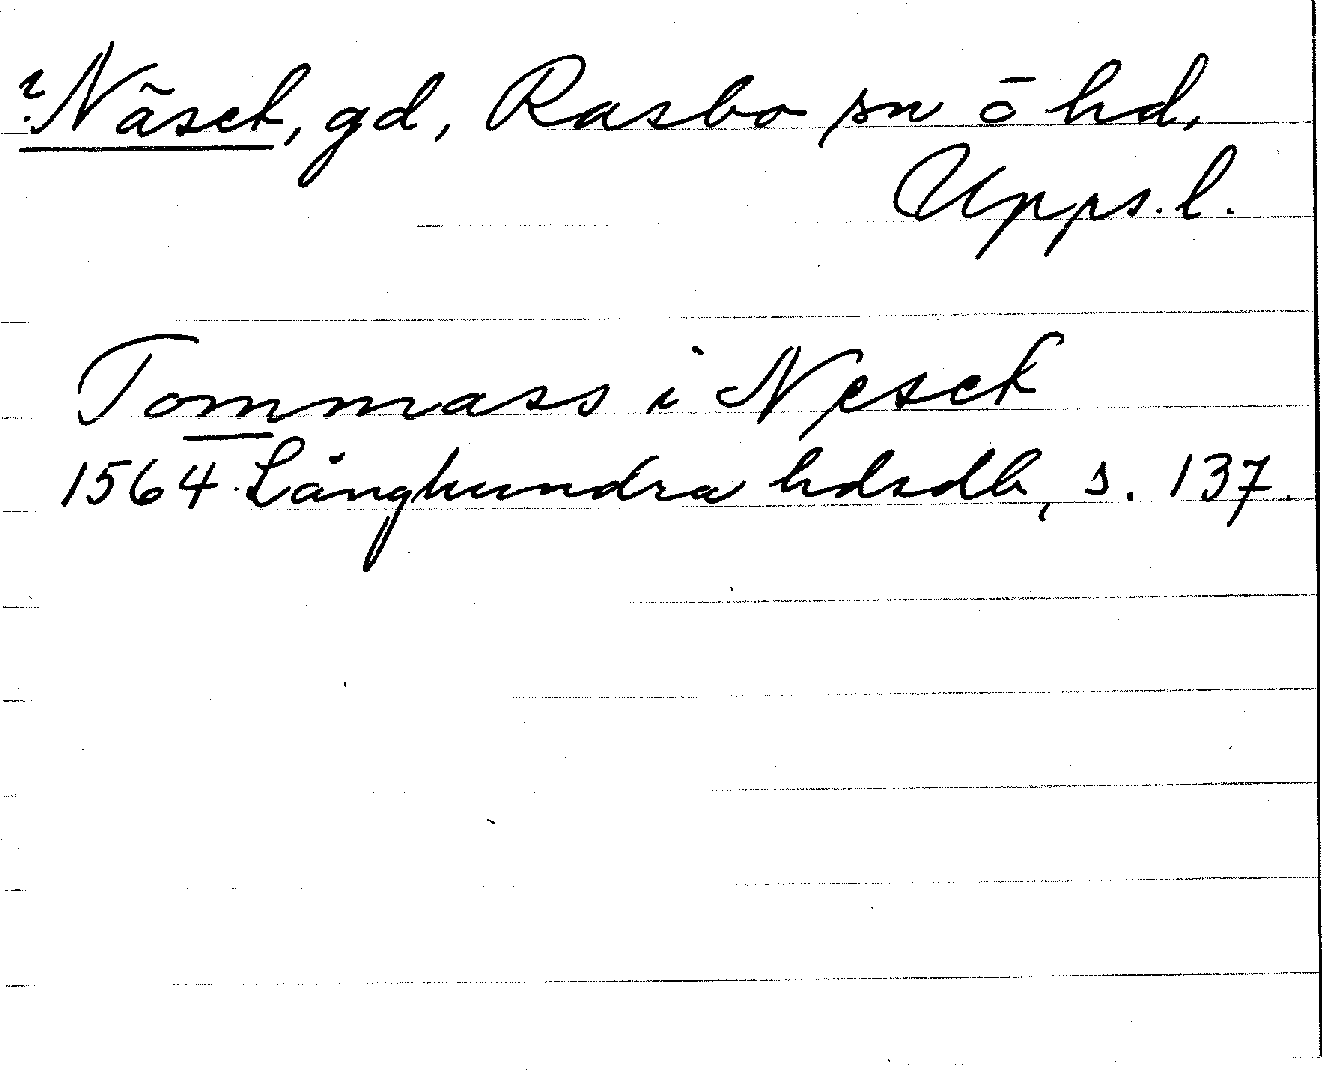 ? Näset, gd, Rasbo sn o hd,
Upps. l.
Tommass i Neset
1564 Långhundra hdsdb, s. 137.